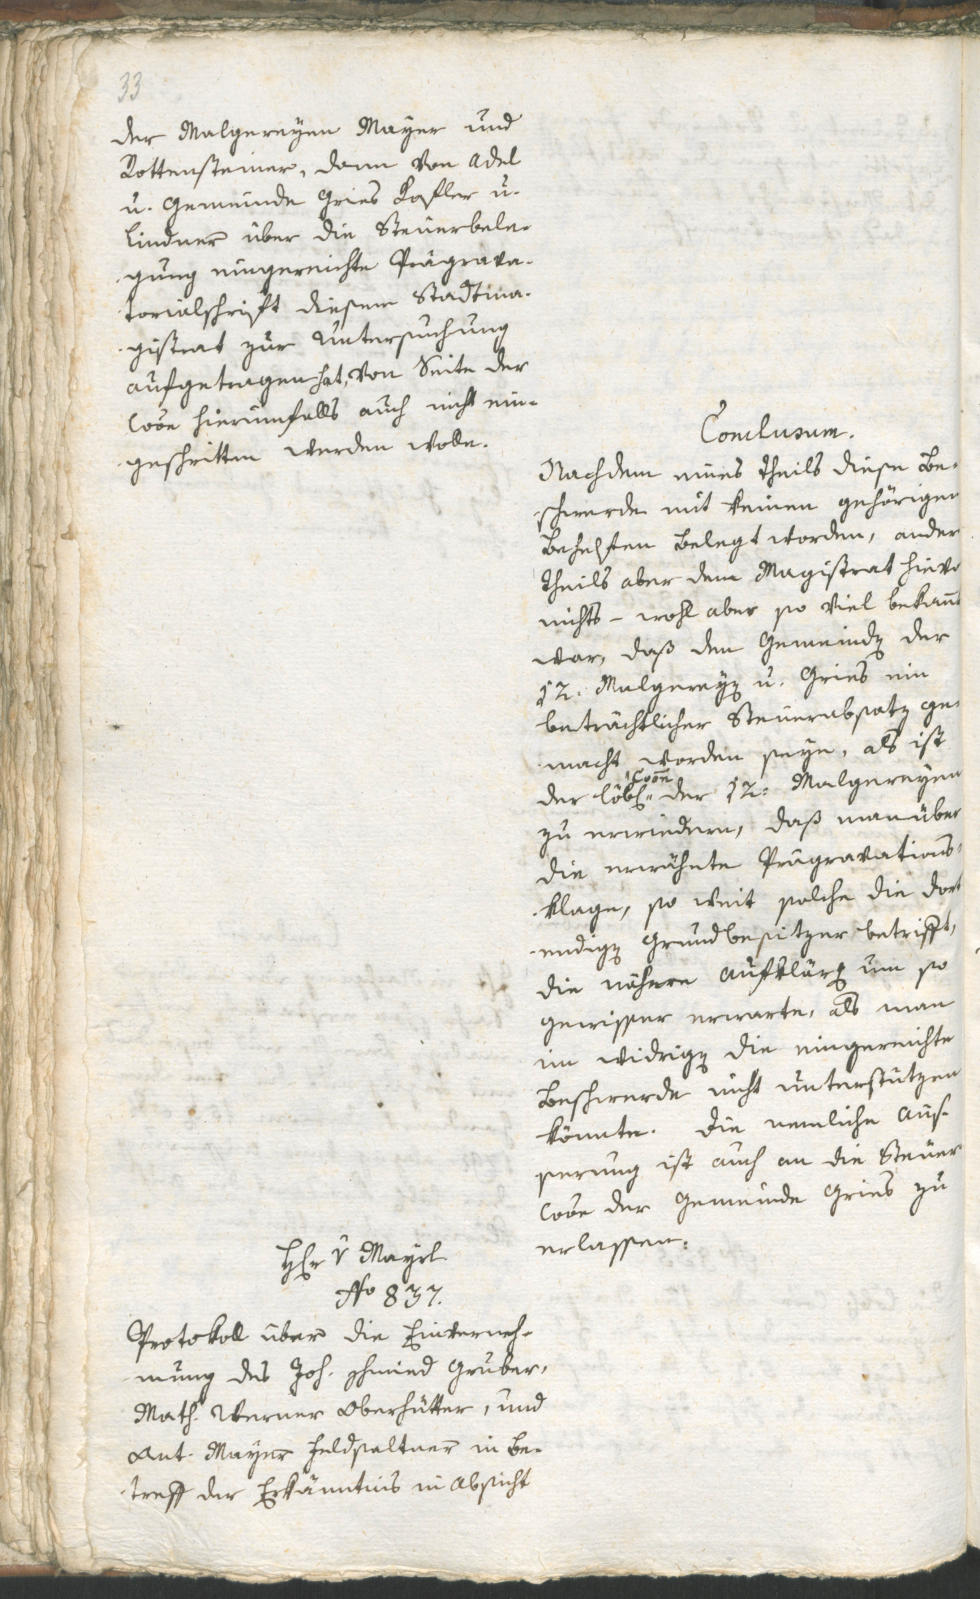 33
der Malgereyen Mayer und
Rottensteiner, dann von Adel
u. Gemeinde Gries Kofler u.
Lindner über die Steuerbele-
gung eingereichte Prägrava-
torialschrift diesem Stadtma-
gistrat zur Untersuchung
aufgetragen hat, von Seite der
Coõn hierumfalls auch nicht ein-
geschritten werden wolle.
Conclusum.
Nachdem eines Theils diese Be-
schwerde mit keinen gehörigen
Behelfen belegt worden, ander
Theils aber dem Magistrat hievo
nichts – wohl aber so viel bekannt
war, daß den Gemeinden der
12. Malgereyen u. Gries ein
beträchtlicher Steuerabsatz ge-
macht worden seye, als ist
der löbl. Coõn der 12: Malgereyen
zu erwiedern, daß man über
die erwähnte Prägravations-
klage, so weit solche die dort
endigen Grundbesitzer betrifft,
die nähere Aufklärung um so
gewisser erwarte, als man
im widrigen die eingereichte
Beschwerde nicht unterstützen
könnte. Die nemliche Aus-
serung ist auch an die Steuer
Coõn der Gemeinde Gries zu
erlassen.
Hr v Mayrl
No 837.
Protokoll über die Einverneh-
mung des Joh. Schmied Gruber,
Math. Werner Oberhütter, und
Ant. Mayer Feldsaltner in Be-
treff der Erkänntnis in Absicht